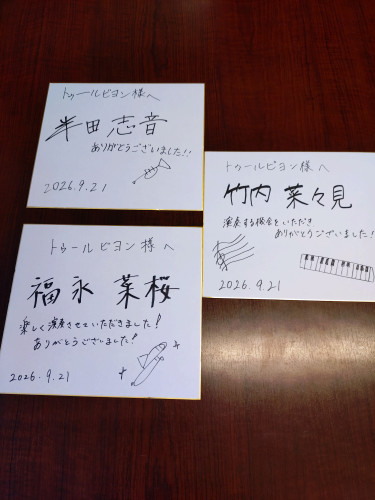 トゥールビヨン様へ
半田志音
ありがとうございました!!
2026.9.21
トゥールビヨン様へ
竹内 菜々見
演奏する機会をいただき
ありがとうございました!
2026.9.21
トゥールビヨン様へ
福永 葉桜
楽しく演奏させていただきました!
ありがとうございました!
2026.9.21